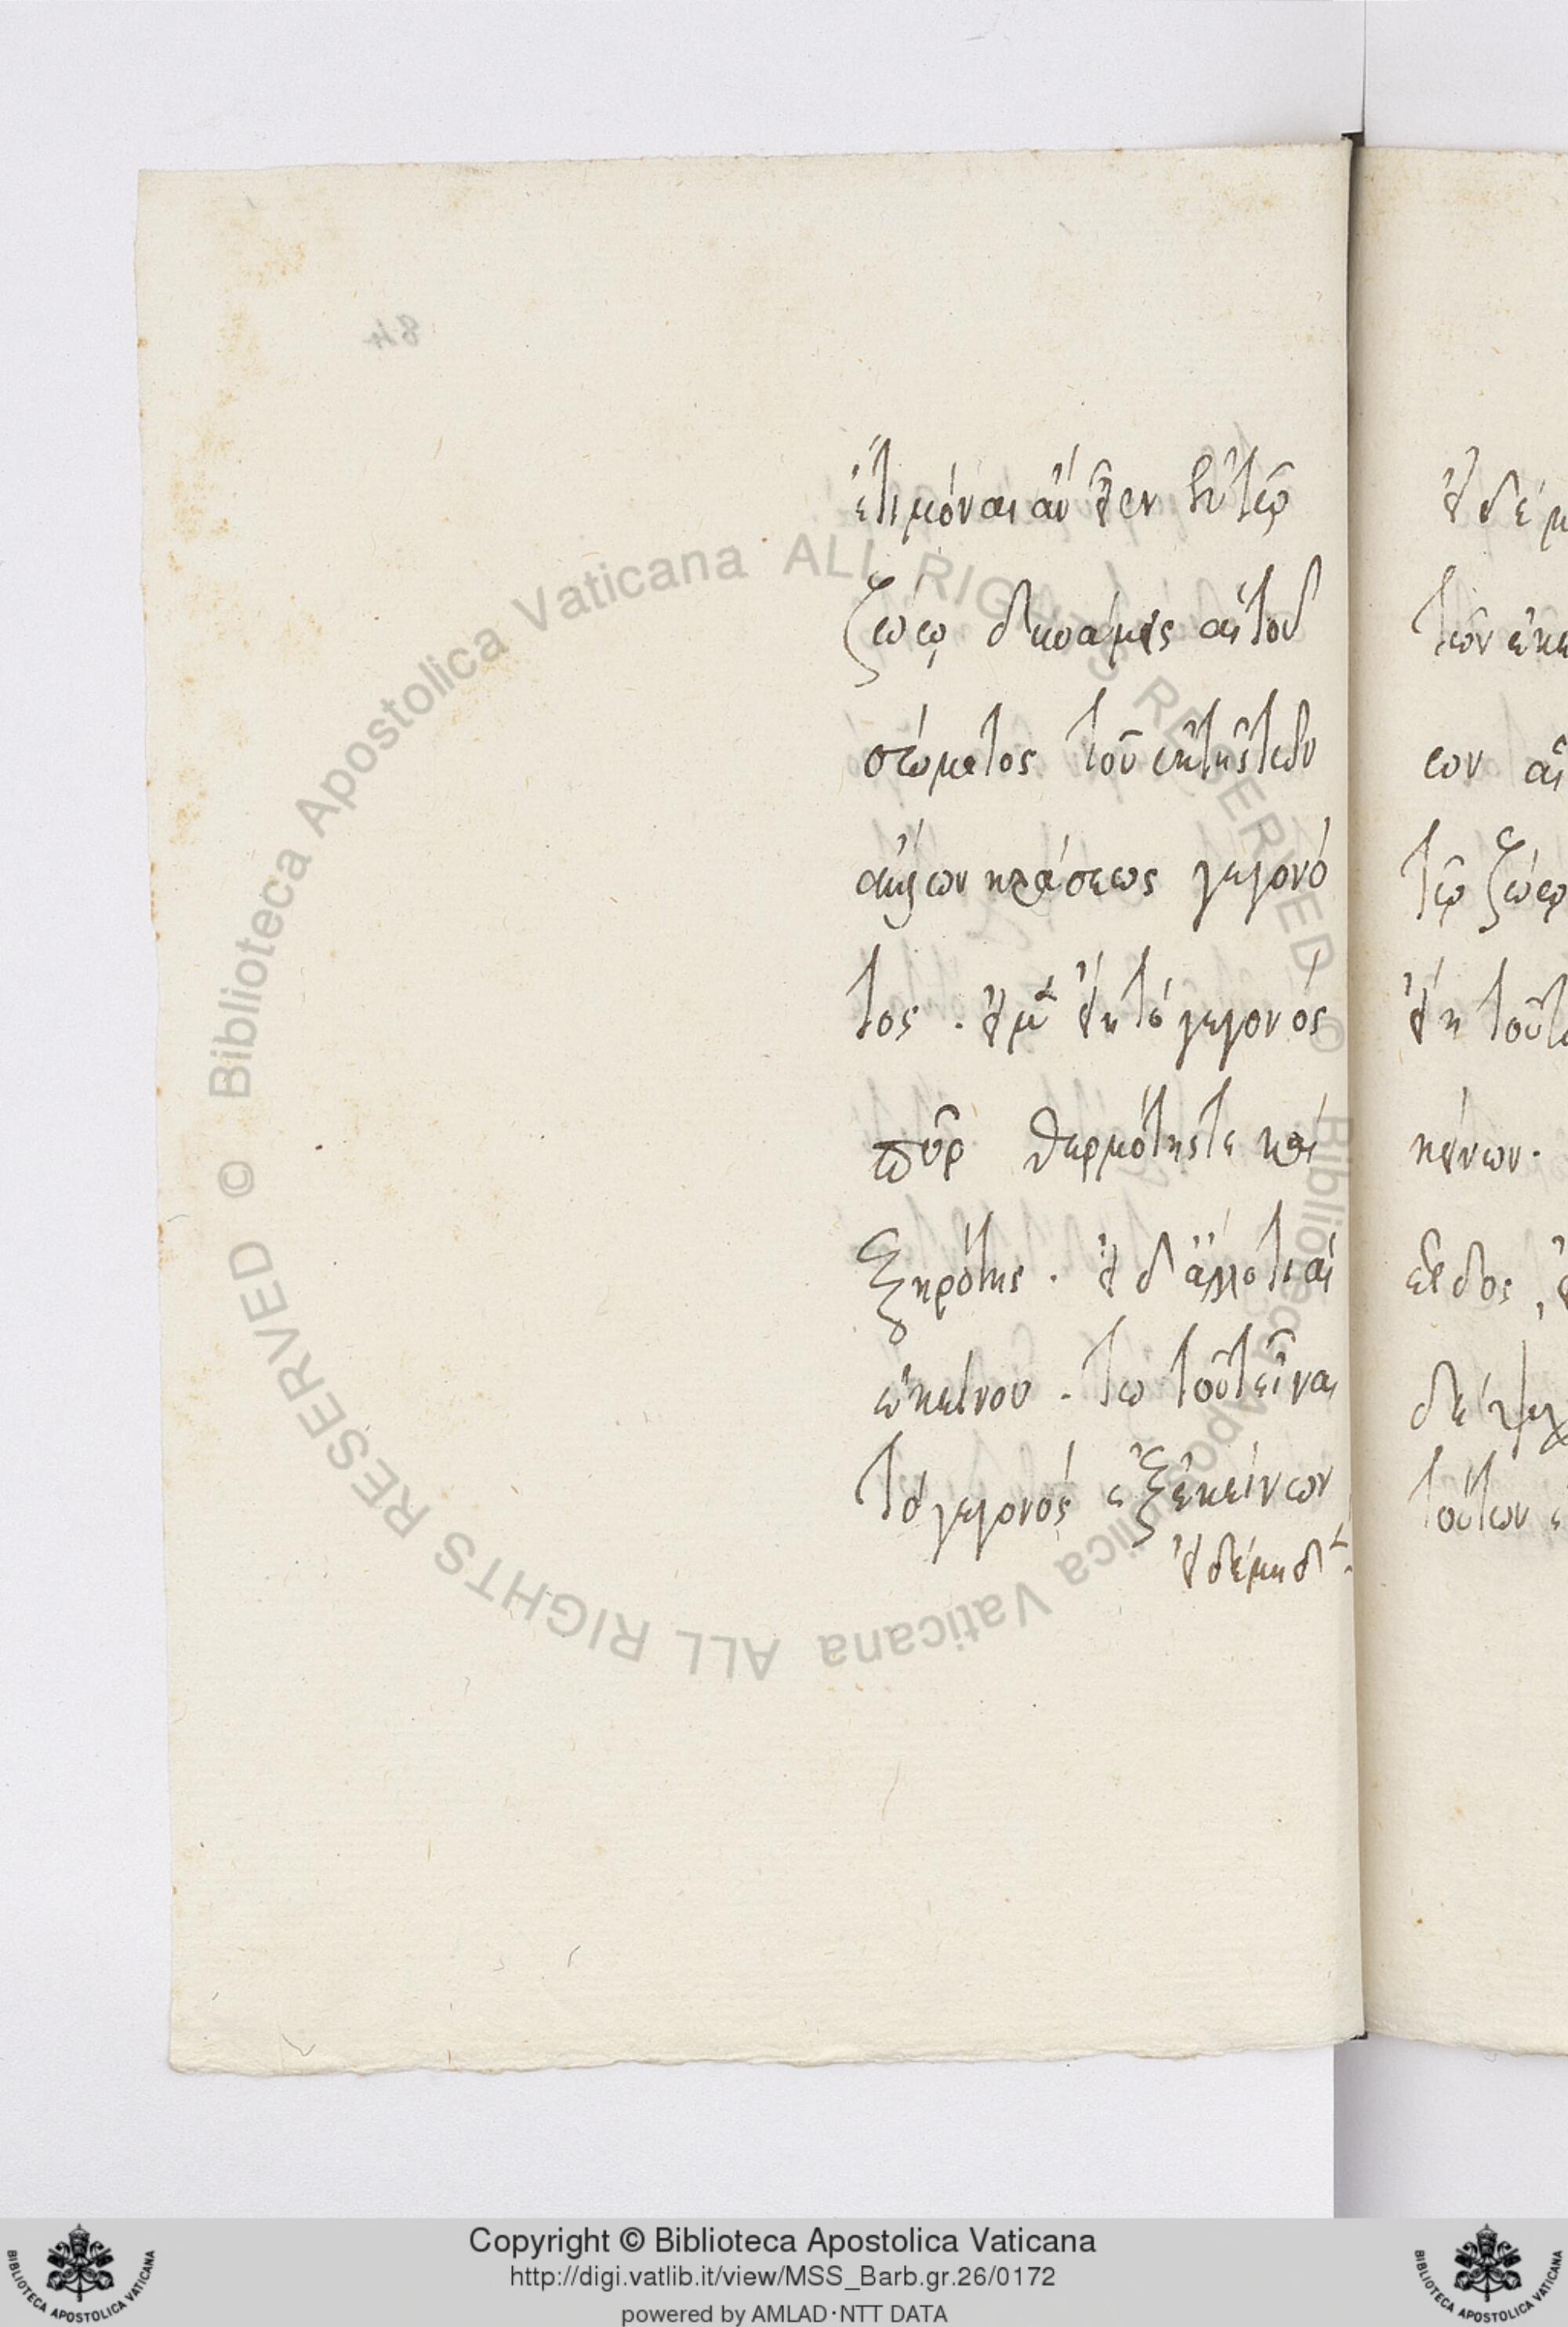 84
ἔτι μόναι ἂν εἶεν ἐν τῷ
ζώῳ δυνάμεις αἱ τοῦ
σώματος τοῦ ἐκ τῆς τῶν
κράσεως γεγονό
τος. εἰ μὲν εἴη τὸ γεγονός
πῦρ θερμότης τε καὶ
ξηρότης. εἰ δ' ἄλλο τι αἱ
ἐκείνου. τῷ τοῦτ' εἶναι
τὸ γεγονὸς ἐξ ἐκείνων
εἰ δὲ μηδ
εἰ δὲ μ
τῶν ἐκε
ων αἱ
τῷ ζώῳ
εἴη τοῦτο
κείνων.
εἶδος,
δὲ ψυχ
τούτων
Biblioteca Apostolica Vaticana ALL RIGHTS RESERVED © Biblioteca Apostolica Vaticana ALL RIGHTS RESERVED ©
Copyright © Biblioteca Apostolica Vaticana
http://digi.vatlib.it/view/MSS_Barb.gr.26/0172
powered by AMLAD·NTT DATA
BIBLIOTECA APOSTOLICA VATICANA
BIBLIOTECA APOSTOLICA VATICANA